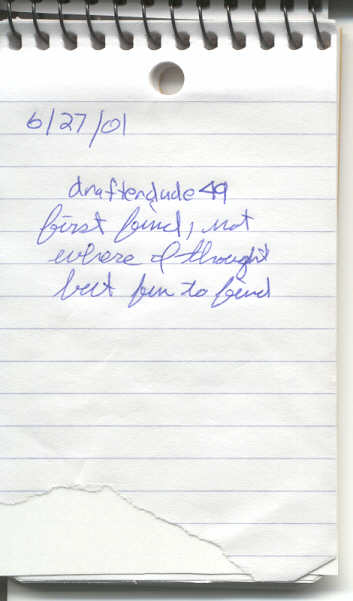 6/27/01
drafterdude49
first find, not
where I thought
but fun to find